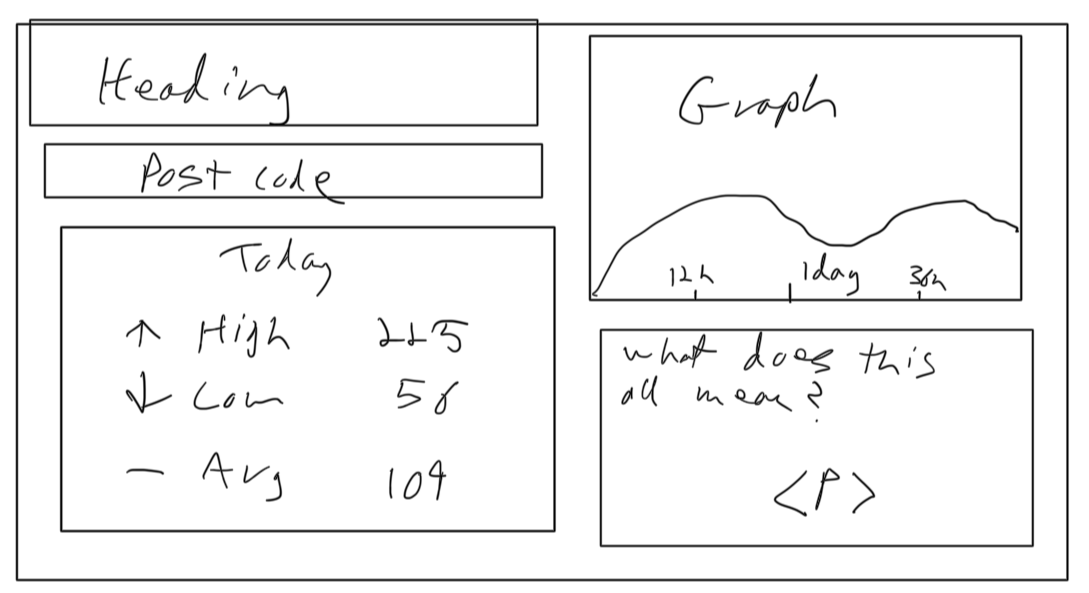 Heading
Post code
Today
↑ High 225
↓ Low 56
- Avg 109
Graph
12h 1day 36h
what does this
all mean?
<P>